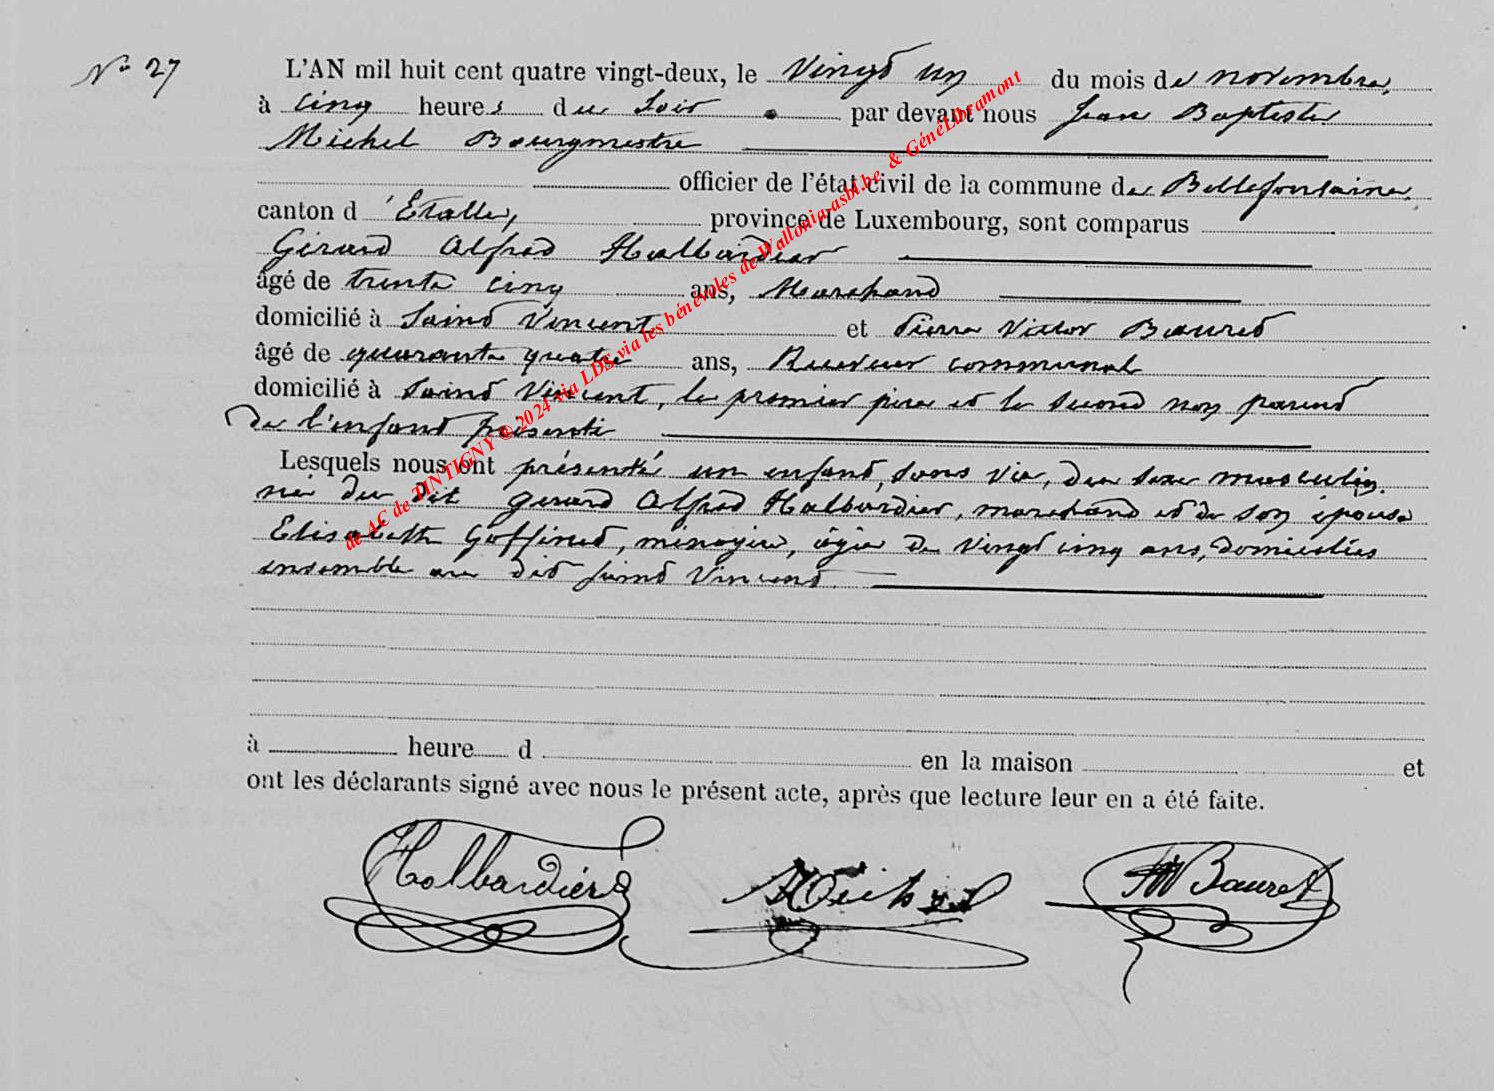 N° 27
L'AN mil huit cent quatre vingt-deux, le Vingt un du mois de novembre,
à cinq heures du Soir par devant nous Jean Baptiste
Michel Bourgmestre
officier de l'état civil de la commune de Bellefontaine,
canton d'Etalle, province de Luxembourg, sont comparus
Gérard Alfred Halbardier
âgé de trente cinq ans, Marchand
domicilié à Saint Vincent et Pierre Victor Bauret
âgé de quarante quatre ans, Receveur communal
domicilié à Saint Vincent, le premier père et le second non parent
de l'enfant présenté
Lesquels nous ont présenté un enfant, sans vie, du sexe masculin,
né du dit Gerard Alfred Halbardier, marchand et de son épouse
Elisabeth Goffinet, ménagère, âgée de vingt cinq ans, domiciliés
ensemble au dit Saint Vincent
à heure d en la maison et
ont les déclarants signé avec nous le présent acte, après que lecture leur en a été faite.
Halbardier Michel Bauret
de AC de TINTIGNY © 2024 via LDS via les bénévoles de Wallonia-asbl.be & GénéLibramont